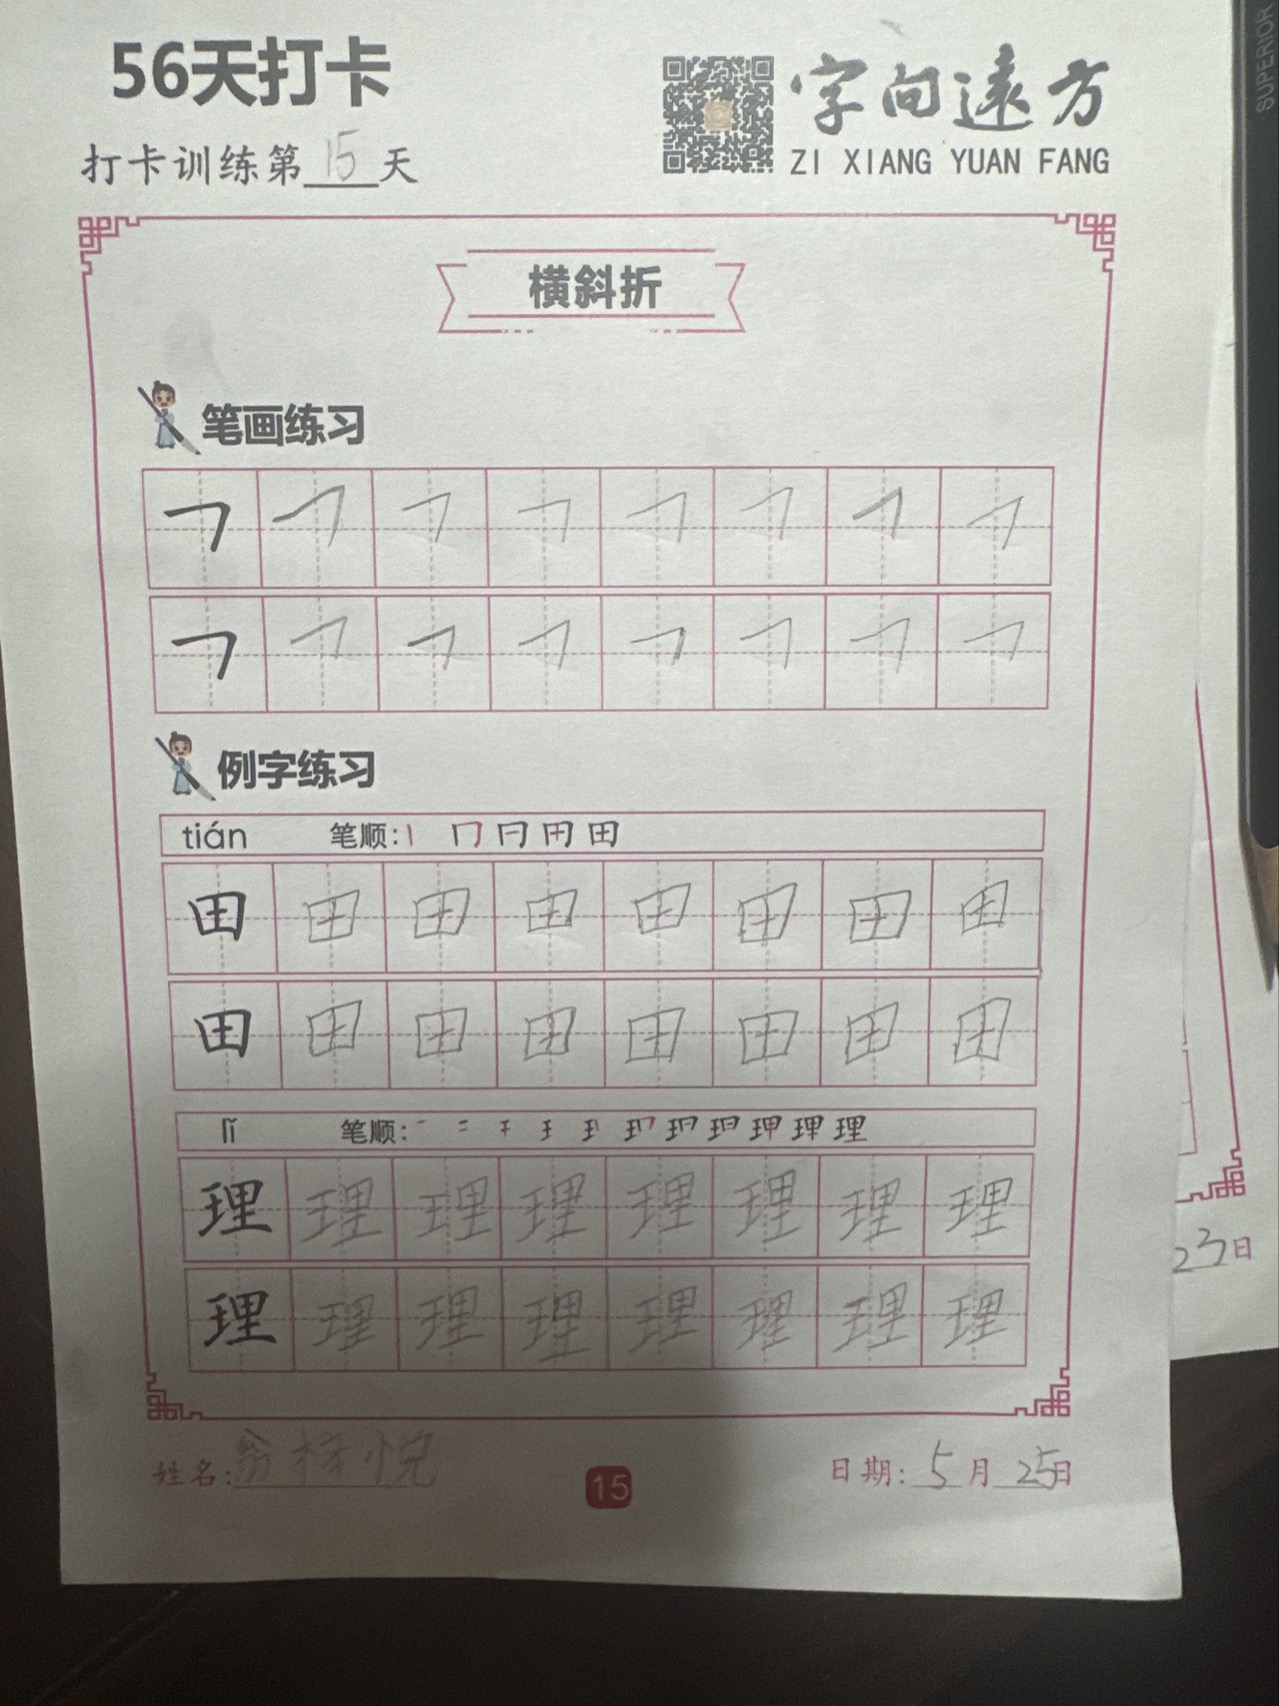 56天打卡
字向遠方
打卡训练第15天
ZI XIANG YUAN FANG
横斜折
笔画练习
例字练习
tián 笔顺:丨 冂 冃 田 田
田 田 田 田 田 田 田 田
田 田 田 田 田 田 田 田
lǐ 笔顺:
理 理 理 理 理 理 理 理
理 理 理 理 理 理 理 理
姓名:翁梓悦
15
日期:5月25日
23日
SUPERIOR